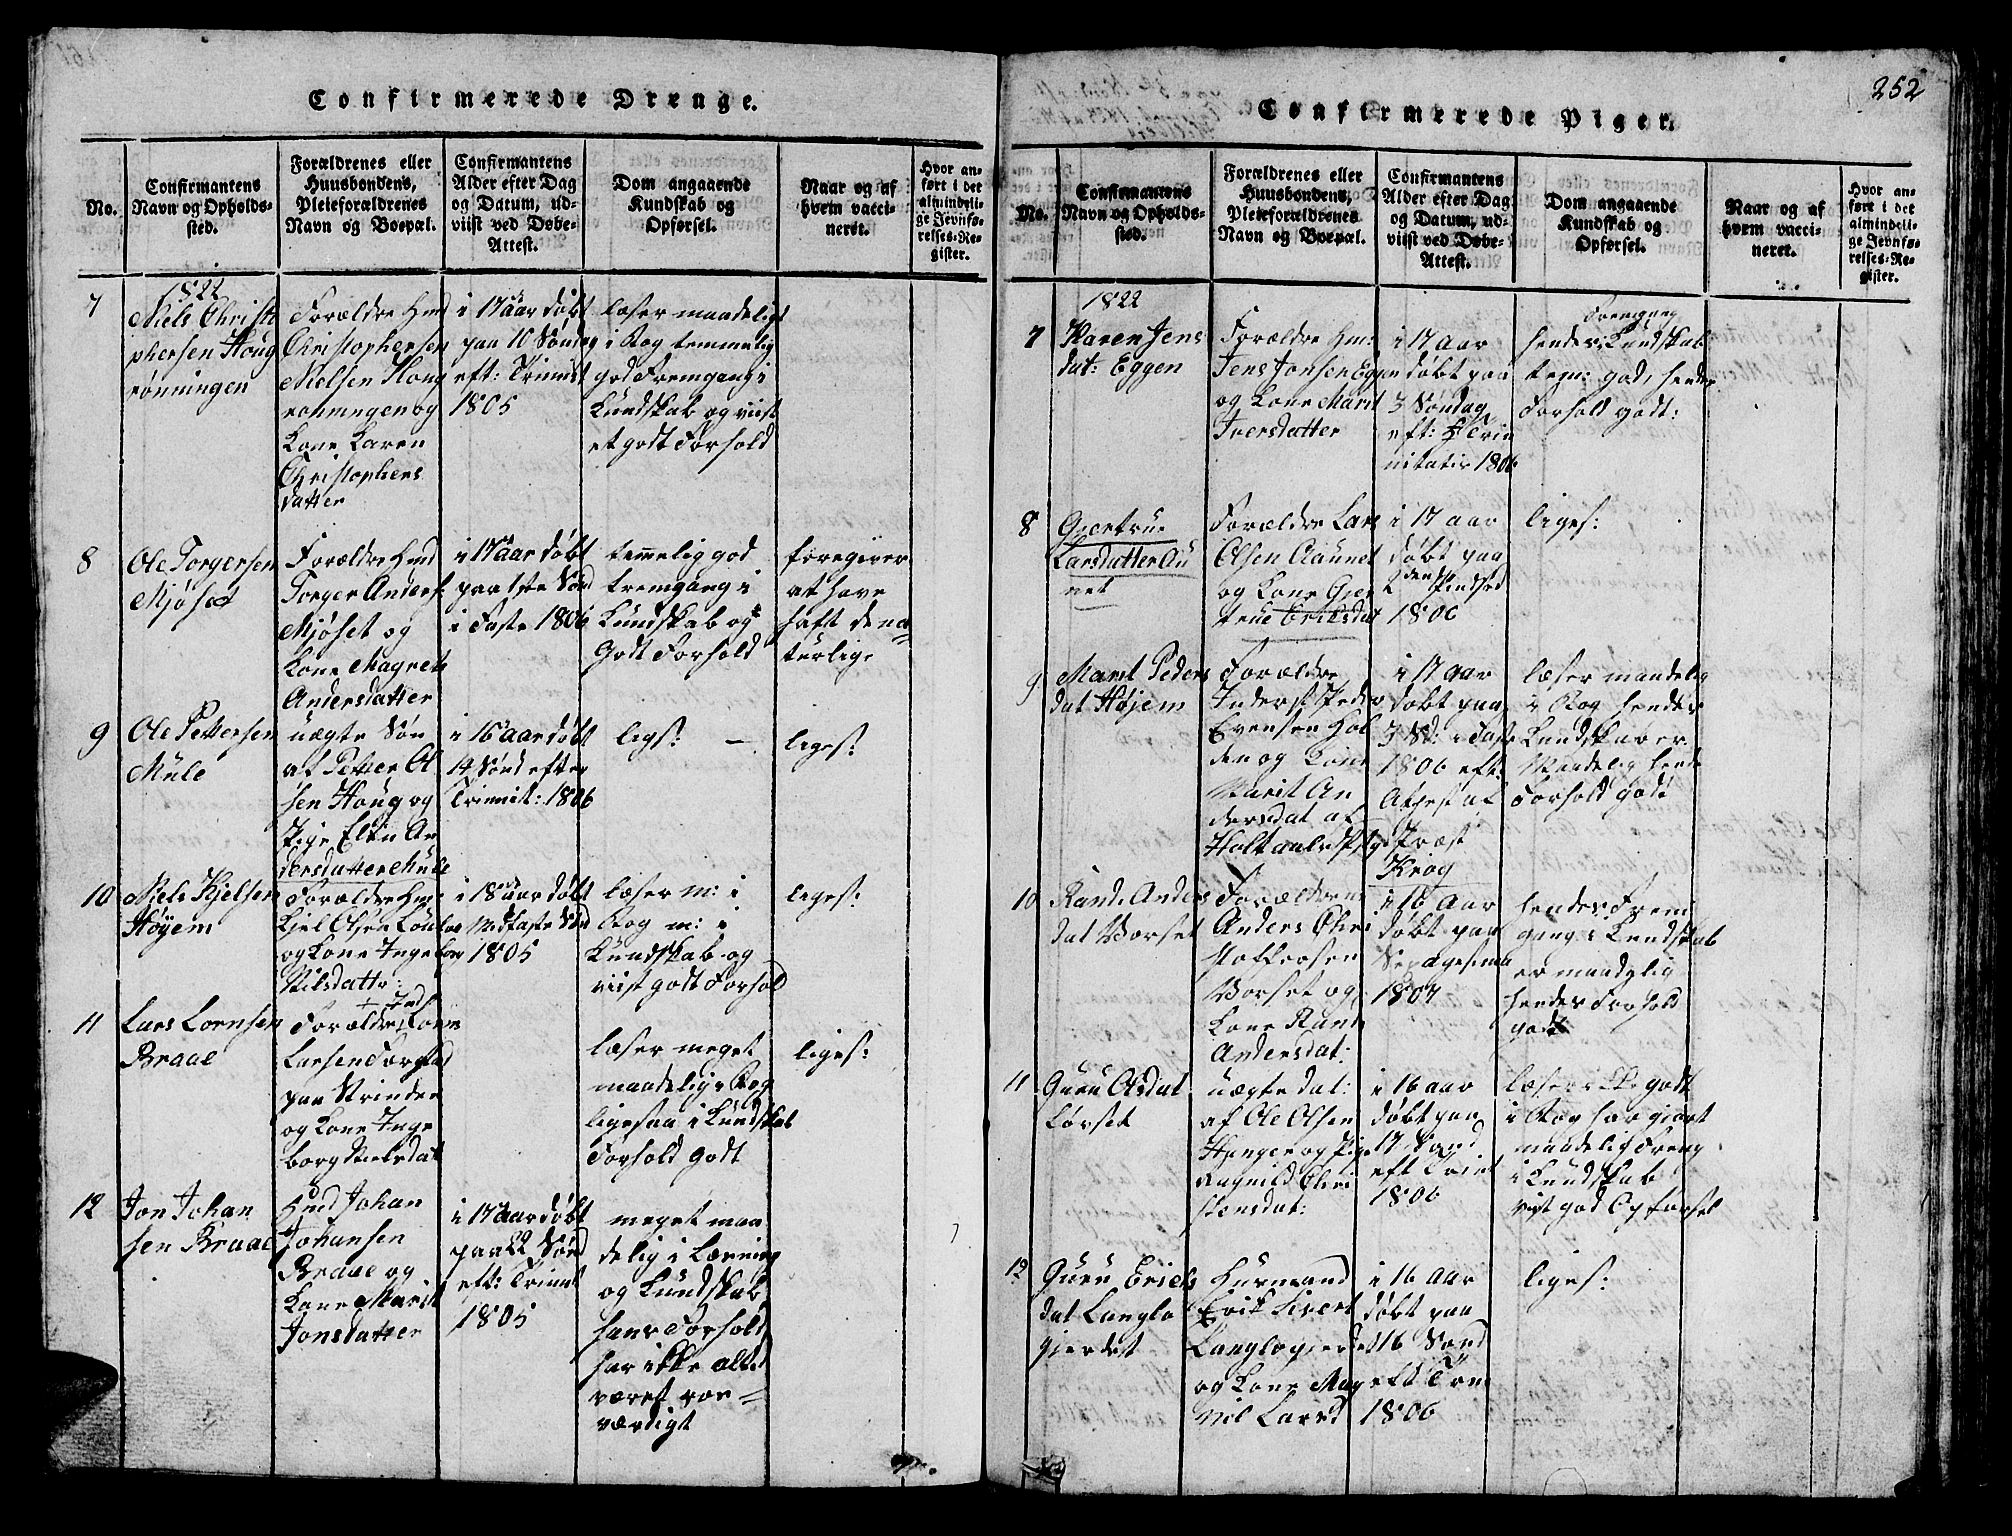 Confirmerede Drenge.
No.
Confirmantens
Navn og Opholds-
sted.
Forældrenes eller
Huusbondens,
Pleieforældrenes
Navn og Boepæl.
Confirmantens
Alder efter Dag
og Datum, ud-
viist ved Døbe-
Attest.
Dom angaaende
Kundskab og
Opførsel.
Naar og af
hvem vacci-
neret.
Hvor an-
ført i det
almindeli-
ge Jevnfø-
relses-Re-
gister.
1822
7
Niels Christo
phersen Houg
rönningen
Forældre Hmd
Christophersen
Nielsen Houg
rönningen og
Kone Karen
Christophers
datter
i 17 aar döbt
paa 10 Söndag
eft: Trinit
1805
læser maadeligt
i Bog temmelig
god Fremgang i
Kundskab og viist
et godt Forhold
8
Ole Torgersen
Mjöset
Forældre Hmd
Torger Anders:
Mjöset og
Kone Magrete
Andersdatter
i 17 aar döbt
paa 1ste Sönd
i Faste 1806
temelig god
fremgang i
Kundskab og
Godt Forhold
foregiver
at have
haft de na-
turlige
9
Ole Pettersen
Mule
uægte Sön
af Petter Ol
sen Houg og
Pige Elin An
dersdatter Mule
i 16 aar döbt
14 Sönd efter
Trinnit: 1806
ligs: –
liges:
10
Niels Kjelsen
Höyem
Forældre Hm:
Kjel Olsen
og Kone Ingebor
Nilsdatter
i 18 aar döbt
Midfaste Sönd
1805
læser m: i
Bog m: i
Kundskab og
viist godt Forhold
liges:
11
Lars Lornsen
Braae
Forældre Inds: Lorns
Larsen
paa Strinden
og Kone Inge
borg Nielsdat
læser meget
maadelig i Bog
ligesaa i Kundskab
Forhold godt
liges:
12
Jon Johan
sen Braae
Hmd Johan
Johansen
Braae og
Kone Marit
Jonsdatter
i 17 aar döbt
paa 22 Sönd
eft: Trinit
1805
meget maa
delig i Læsning
og Kundskab
hans Forhold
har ikke altid
været roes-
værdigt
252
Confirmerede Piger.
No.
Confirmantens
Navn og Opholds-
sted.
Forældrenes eller
Huusbondens,
Pleieforældrenes
Navn og Boepæl.
Confirmantens
Alder efter Dag
og Datum, ud-
viist ved Døbe-
Attest.
Dom angaaende
Kundskab og
Opførsel.
Naar og af
hvem vacci-
neret.
Hvor an-
ført i det
almindeli-
ge Jevnfø-
relses-Re-
gister.
1822
7
Karen Jens
dat: Eggen
Forældre Hm:
Jens Jonsen Eggen
og Kone Marit
Iversdatter
i 17 aar
döbt paa
3 Söndag
eft: Tri
nitatis 1806
Fremgang
hendes Kundskab
tegn: god, hendes
Forhold godt:
8
Gjertrue
Larsdatter Au
net
Forældre Lars
Olsen Aaunet
og Kone Gjer
true Eriksdat
i 17 aar
döbt paa
2den Pindsed
1806
liges:
9
Marit Peders
dat Höjem
Forældre
Inderst Peder
Evensen Hol
den og Kone
Marit An
dersdat af
Holtaalens Pgl
i 17 aar
döbt paa
3 Sd: i Faste
1806 eft:
Attest af
Præst
Krog
læser maadelig
i Bog hendes
Kundskab er
Maadelig hendes
Forhold godt
10
Randi Anders
dat Vorset
Forældrene
Anders Chri
stoffersen
Vorset og
Kone Randi
Andersdat:
i 16 aar
döbt paa
Sexagesima
1807
hendes Frem
gang i Kundskab
er maadelig
hendes Forhold
godt
11
Guru Olsdat
Lörset
uægte dat:
af Ole Olsen
Hanger og Pige
Ragnild Chri
stensdat:
i 16 aar
döbt paa
17 Sönd
eft Trinit
1806
læser ikke godt
i Bog har gjort
maadelig Fremg
i Kundskab
vist god Opførsel
12
Guru Erichs
dat Langlo
gjerdet
Husmand
Erik Sivert
Langlogjerdet
og Kone Mag
nil Larsd
i 16 aar
döbt paa
16 Sönd
eft Trin
1806
liges: